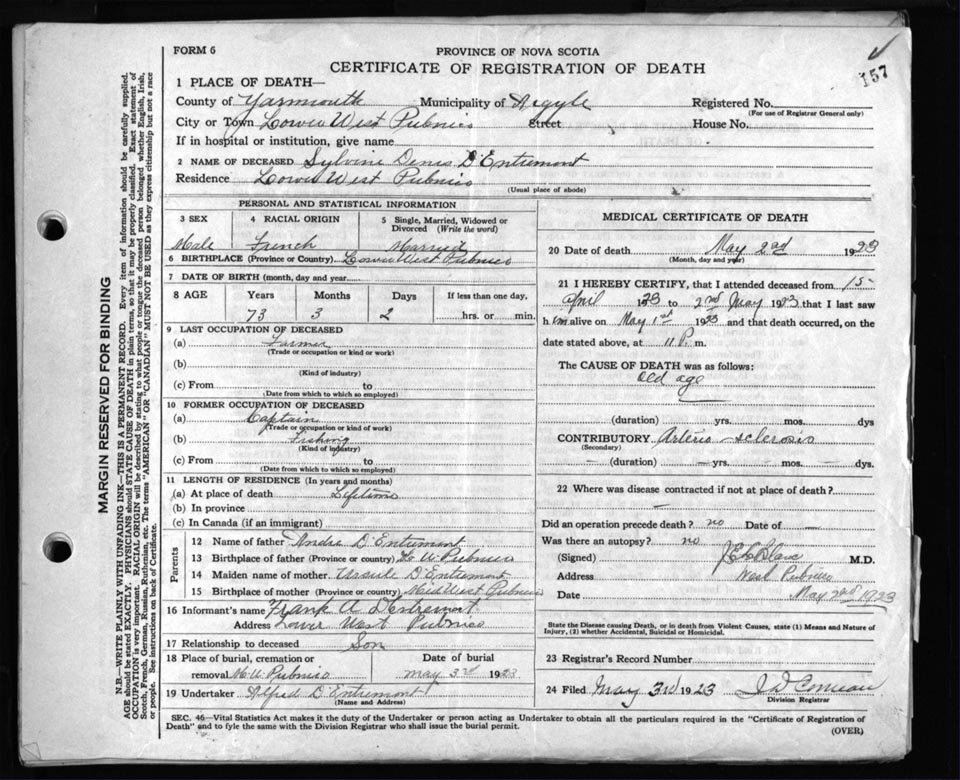 FORM 6
PROVINCE OF NOVA SCOTIA
CERTIFICATE OF REGISTRATION OF DEATH
157
1 PLACE OF DEATH—
County of Yarmouth Municipality of Argyle Registered No.
(For use of Registrar General only)
City or Town Lower West Pubnico Street House No.
If in hospital or institution, give name
2 NAME OF DECEASED Sylvine Denis D'Entremont
Residence Lower West Pubnico
(Usual place of abode)
PERSONAL AND STATISTICAL INFORMATION
3 SEX 4 RACIAL ORIGIN 5 Single, Married, Widowed or Divorced (Write the word)
Male French Married
6 BIRTHPLACE (Province or Country) Lower West Pubnico
7 DATE OF BIRTH (month, day and year)
8 AGE Years Months Days If less than one day,
73 3 2 hrs. or min.
9 LAST OCCUPATION OF DECEASED
(a) Farmer
(Trade or occupation or kind or work)
(b)
(Kind of industry)
(c) From to
(Date from which to which so employed)
10 FORMER OCCUPATION OF DECEASED
(a) Captain
(Trade or occupation or kind or work)
(b) Fishing
(Kind of industry)
(c) From to
(Date from which to which so employed)
11 LENGTH OF RESIDENCE (In years and months)
(a) At place of death Lifetime
(b) In province
(c) In Canada (if an immigrant)
Parents
12 Name of father Andre D'Entremont
13 Birthplace of father (Province or country) L W. Pubnico
14 Maiden name of mother Ursule D'Entremont
15 Birthplace of mother (Province or country) Mid West Pubnico
16 Informant's name Frank A D'Entremont
Address Lower West Pubnico
17 Relationship to deceased Son
18 Place of burial, cremation or Date of burial
removal M. W. Pubnico May 3rd 1923
19 Undertaker Alfred D'Entremont
(Name and Address)
MEDICAL CERTIFICATE OF DEATH
20 Date of death May 2nd 1923
(Month, day and year)
21 I HEREBY CERTIFY, that I attended deceased from 15-
April 1923 to 2nd May 1923 that I last saw
him alive on May 1st 1923 and that death occurred, on the
date stated above, at 11 P. m.
The CAUSE OF DEATH was as follows:
old age
(duration) yrs. mos. dys
CONTRIBUTORY Arterio-sclerosis
(Secondary)
— (duration) — yrs. mos. dys.
22 Where was disease contracted if not at place of death?
—
Did an operation precede death? no Date of —
Was there an autopsy? no
(Signed) LeBlanc M.D.
Address West Pubnico
Date May 2nd 1923
State the Disease causing Death, or in death from Violent Causes, state (1) Means and Nature of
Injury, (2) whether Accidental, Suicidal or Homicidal.
23 Registrar's Record Number
24 Filed May 3rd 1923 Comeau
Division Registrar
SEC. 46—Vital Statistics Act makes it the duty of the Undertaker or person acting as Undertaker to obtain all the particulars required in the "Certificate of Registration of
Death" and to fyle the same with the Division Registrar who shall issue the burial permit.
(OVER)
MARGIN RESERVED FOR BINDING
N.B.—WRITE PLAINLY WITH UNFADING INK—THIS IS A PERMANENT RECORD. Every item of information should be carefully supplied.
AGE should be stated EXACTLY. PHYSICIANS should STATE CAUSE OF DEATH in plain terms, so that it may be properly classified. Exact statement of
OCCUPATION is very important. RACIAL ORIGIN will be described by stating to what people or tongue the deceased person belonged whether English, Irish,
Scotch, French, German, Russian, Ruthenian, etc. The terms "AMERICAN" OR "CANADIAN" MUST NOT BE USED as they express citizenship but not a race
or people. See instructions on back of Certificate.